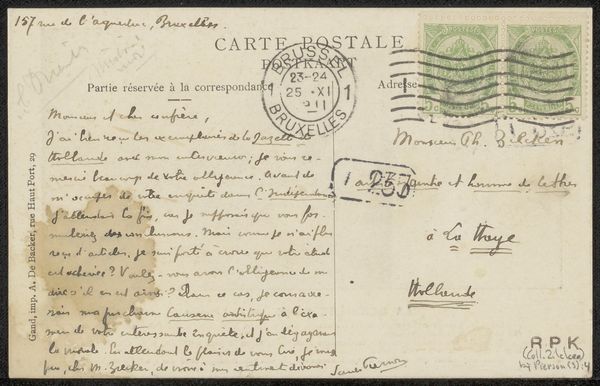 157 rue de l'aqueduc, Bruxelles.
CARTE POSTALE
POSTKAART
Partie réservée à la correspondance
Adresse
BRUSSEL
1 23-24 1
25 XI
11
BRUXELLES
Monsieur et cher confrère,
J'ai bien reçu les exemplaires de la Gazette de
Hollande avec mon interview; je vous re-
mercie beaucoup de votre obligeance. Avant de
m'occuper de votre enquête dans l'Indépendance
j'attendais la fin, car je supposais que vous for-
muleriez des conclusions. Mais comme je n'ai plus
reçu d'articles, je suis porté à croire que votre étude
est achevée? Voulez-vous avoir l'obligeance de me
dire s'il en est ainsi? Dans ce cas, je consacre-
rais ma prochaine causerie artistique à l'exa-
men de votre intéressante enquête, et j'en dégagerais
la morale. En attendant le plaisir de vous lire, je vous
prie, cher M. Zilcken, de croire à mes sentiments dévoués.
Sander Pierron
Monsieur Ph. Zilcken
artiste peintre et homme de lettres
à La Haye
Hollande
Gand, imp. A. De Backer, rue Haut Port, 29
R.P.K